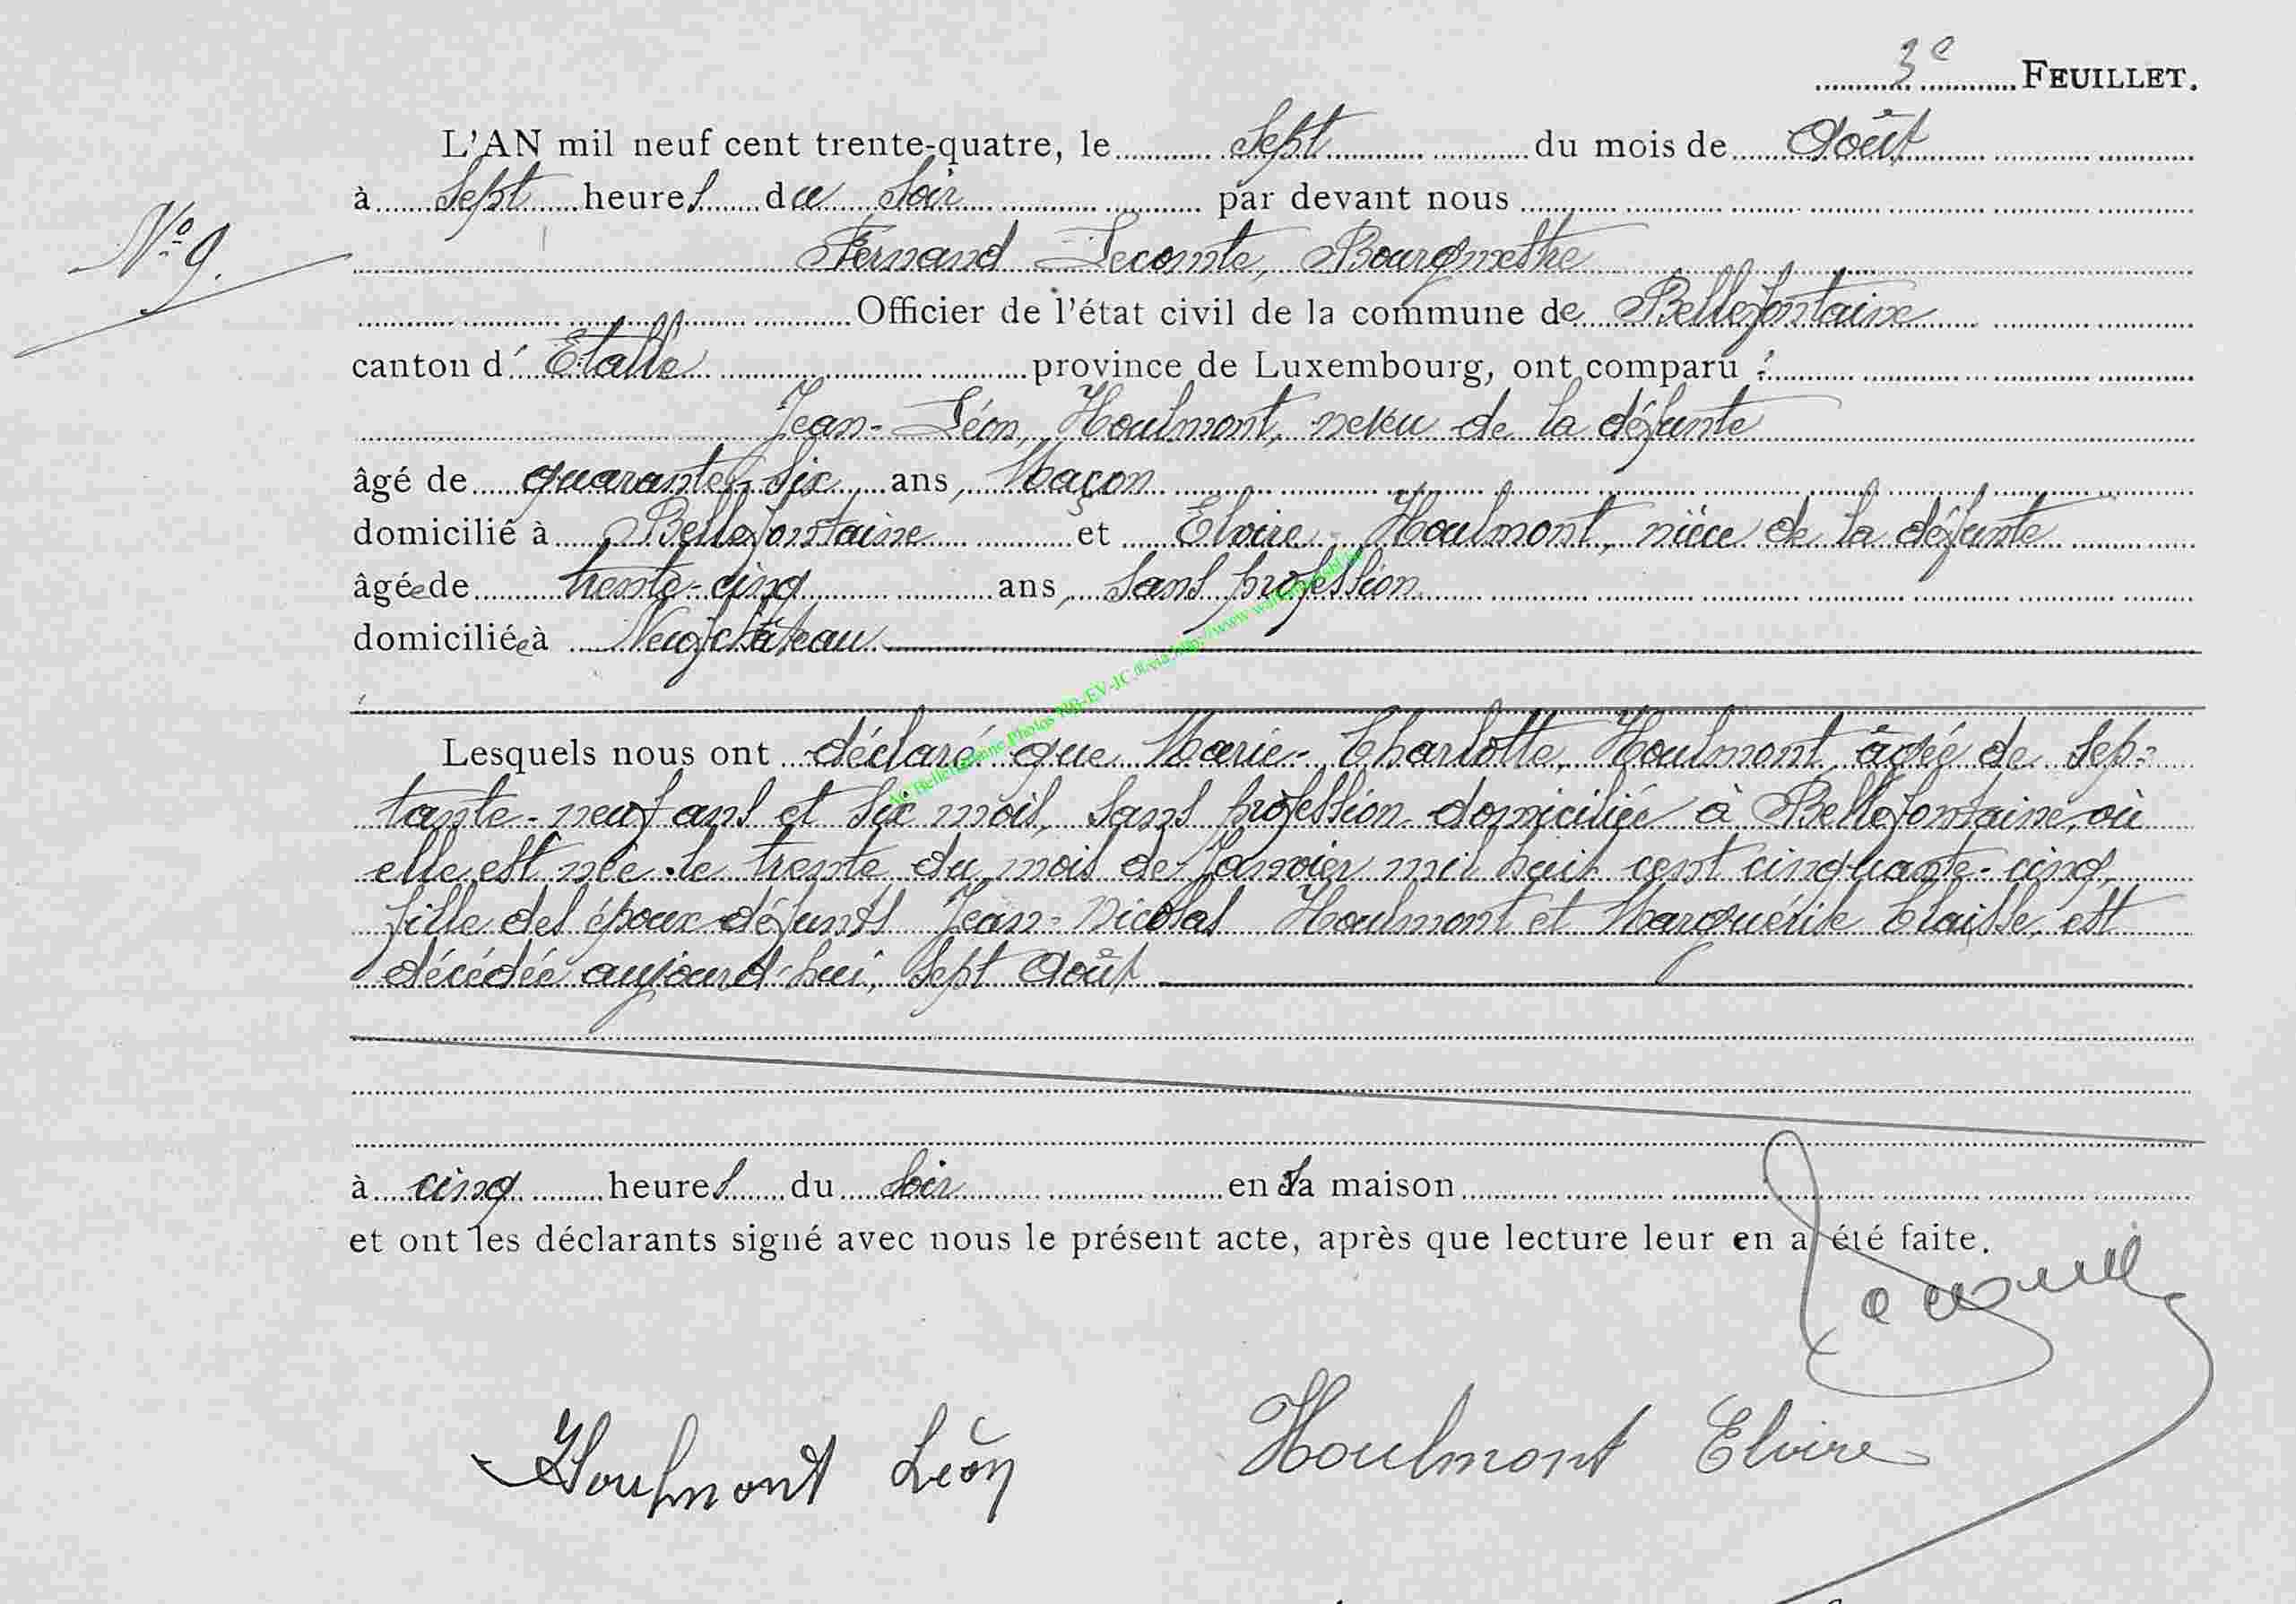 3e FEUILLET.
L'AN mil neuf cent trente-quatre, le Sept du mois de Août
à Sept heures du Soir par devant nous
Nº 9.
Fernand Lecomte, Bourgmestre
Officier de l'état civil de la commune de Bellefontaine
canton d'Etalle province de Luxembourg, ont comparu :
Jean-Léon, Houlmont, neveu de la défunte
âgé de quarante-six ans, Maçon
domicilié à Bellefontaine et Elvire Houlmont, nièce de la défunte
âgée de trente-cinq ans, Sans profession
domiciliée à Neufchâteau
Lesquels nous ont déclaré que Marie-Charlotte, Houlmont, âgée de sep=
tante-neuf ans et six mois, sans profession domiciliée à Bellefontaine, où
elle est née le trente du mois de Janvier mil huit cent cinquante-cinq,
fille des époux défunts Jean-Nicolas Houlmont et Marguérite Claisse, est
décédée aujourd'hui, Sept Août
à cinq heures du Soir en sa maison
et ont les déclarants signé avec nous le présent acte, après que lecture leur en a été faite.
Houlmont Léon
Houlmont Elvire